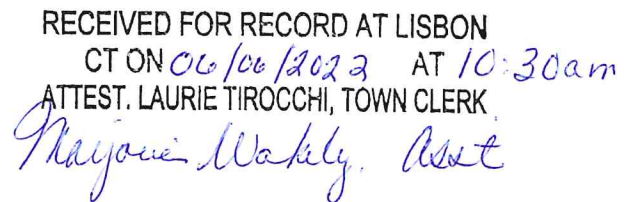 RECEIVED FOR RECORD AT LISBON
CT ON 06/06/2022 AT 10:30am
ATTEST. LAURIE TIROCCHI, TOWN CLERK
Marjorie Wakely. Asst